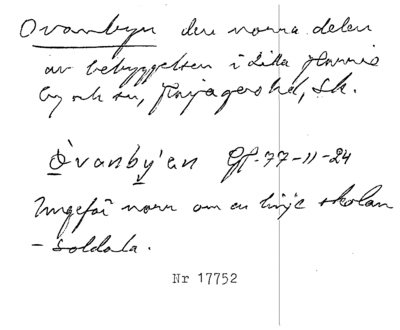 Ovanbyn den norra delen
av bebyggelsen i Lilla Harrie
by och sn, Harjagers hd, Sk.
Òvanby'en Gf-77-11-24
Ungefär norr om en linje skolan
- Soldala.
Nr 17752